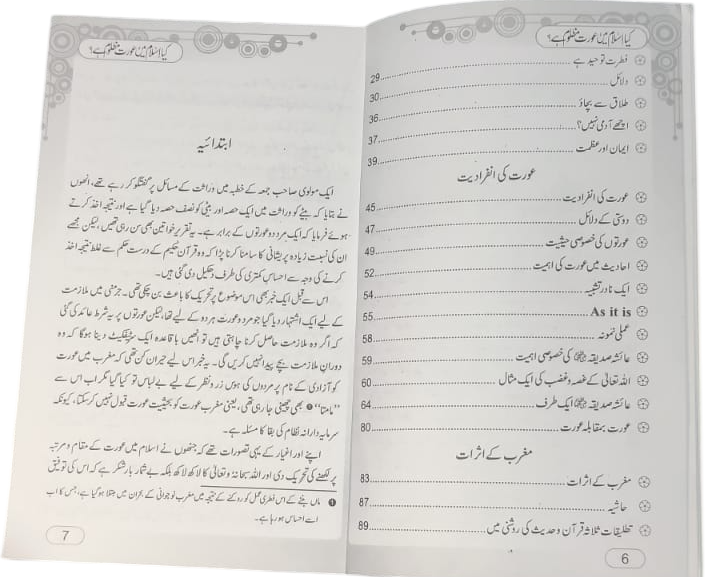 کیا اسلام میں عورت مظلوم ہے؟
فطرت توحید ہے
29
دلائل
30
طلاق سے بچاؤ
36
اچھے آدمی نہیں؟
37
ایمان اور عظمت
39
عورت کی انفرادیت
عورت کی انفرادیت
45
دوستی کے دلائل
47
عورتوں کی خصوصی حیثیت
49
احادیث میں عورت کی اہمیت
52
ایک نادر تشبیہ
54
As it is
55
عملی نمونہ
58
عائشہ صدیقہ کی خصوصی اہمیت
59
اللہ تعالیٰ کے غصہ و غضب کی ایک مثال
60
عائشہ صدیقہ ایک طرف
64
عورت بمقابلہ عورت
80
مغرب کے اثرات
مغرب کے اثرات
83
حاشیہ
87
تطلیقات ثلاثہ قرآن و حدیث کی روشنی میں
89
6
کیا اسلام میں عورت مظلوم ہے؟
ابتدائیہ
ایک مولوی صاحب جمعہ کے خطبہ میں وراثت کے مسائل پر گفتگو کر رہے تھے، انھوں
نے بتایا کہ بیٹے کو وراثت میں ایک حصہ اور بیٹی کو نصف حصہ دیا گیا ہے اور نتیجہ اخذ کرتے
ہوئے فرمایا کہ ایک مرد دو عورتوں کے برابر ہے۔ یہ تقریر خواتین بھی سن رہی تھیں، لیکن مجھے
ان کی نسبت زیادہ پریشانی کا سامنا کرنا پڑا کہ وہ قرآن حکیم کے درست حکم سے غلط نتیجہ اخذ
کرنے کی وجہ سے احساسِ کمتری کی طرف دھکیل دی گئی ہیں۔
اس سے قبل ایک خبر بھی اس موضوع پر تحریک کا باعث بن چکی تھی۔ جرمنی میں ملازمت
کے لیے ایک اشتہار دیا گیا جو مرد و عورت ہر دو کے لیے تھا، لیکن عورتوں پر یہ شرط عائد کی گئی
کہ اگر وہ ملازمت حاصل کرنا چاہتی ہیں تو انھیں باقاعدہ ایک سرٹیفکیٹ دینا ہوگا کہ وہ
دورانِ ملازمت بچے پیدا نہیں کریں گی۔ یہ خبر اس لیے حیران کن تھی کہ مغرب میں عورت
کو آزادی کے نام پر مردوں کی ہوسِ زر و نظر کے لیے بے لباس تو کیا گیا مگر اب اس سے
”مامتا“ ❶ بھی چھینی جا رہی تھی، یعنی مغرب عورت کو بحیثیت عورت قبول نہیں کر سکتا، کیونکہ
سرمایہ دارانہ نظام کی بقا کا مسئلہ ہے۔
اپنے اور اغیار کے یہی تصورات تھے کہ جنھوں نے اسلام میں عورت کے مقام و مرتبہ
پر لکھنے کی تحریک دی اور اللہ سبحانہ وتعالیٰ کا لاکھ لاکھ بلکہ بے شمار بار شکر ہے کہ اس کی توفیق
❶ ماں بننے کے اس فطری عمل کو روکنے کے نتیجہ میں مغرب نوجوانی کے بحران میں مبتلا ہو گیا ہے، جس کا اب
اسے احساس ہو رہا ہے۔
7